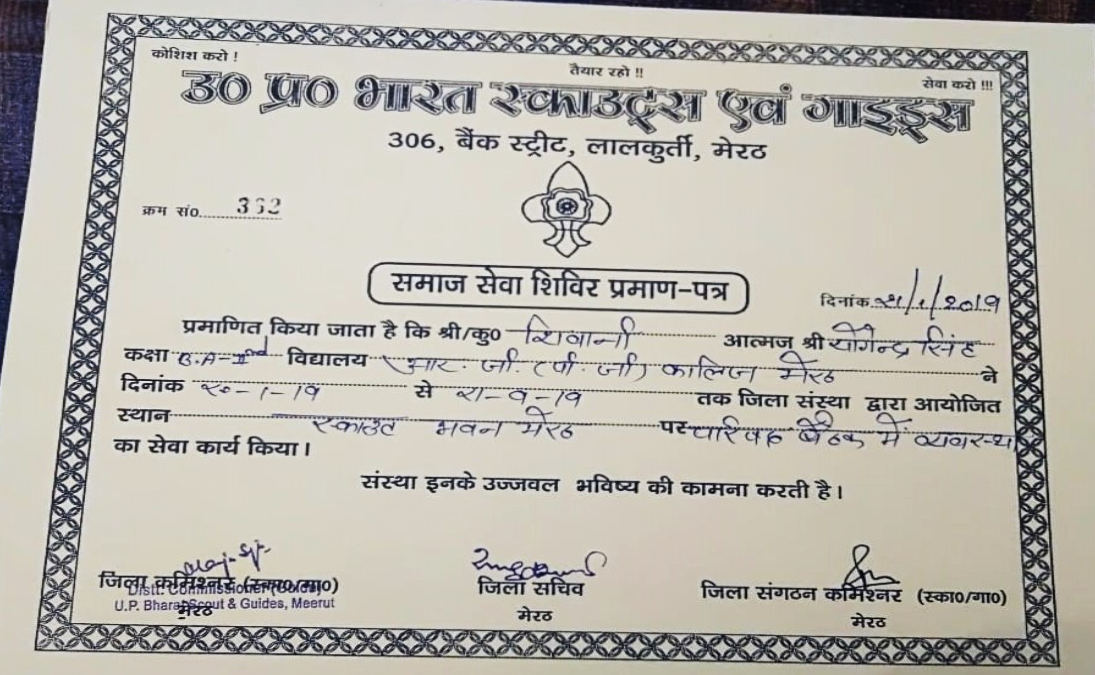 कोशिश करो !
तैयार रहो !!
सेवा करो !!!
उ० प्र० भारत स्काउट्स एवं गाइड्स
306, बैंक स्ट्रीट, लालकुर्ती, मेरठ
क्रम सं०
समाज सेवा शिविर प्रमाण-पत्र
दिनांक 21/1/2019
प्रमाणित किया जाता है कि श्री/कु० शिवानी आत्मज श्री योगेन्द्र सिंह
कक्षा B.A-IInd विद्यालय आर. जी. (पी. जी) कालिज मेरठ ने
दिनांक २०-1-19 से २१-१-19 तक जिला संस्था द्वारा आयोजित
स्थान स्काउट भवन मेरठ पर परिषद बैठक में
का सेवा कार्य किया।
संस्था इनके उज्जवल भविष्य की कामना करती है।
जिला कमिश्नर (स्का०/गा०)
Distt. Commissioner (Guide)
U.P. Bharat Scout & Guides, Meerut
मेरठ
जिला सचिव
मेरठ
जिला संगठन कमिश्नर (स्का०/गा०)
मेरठ